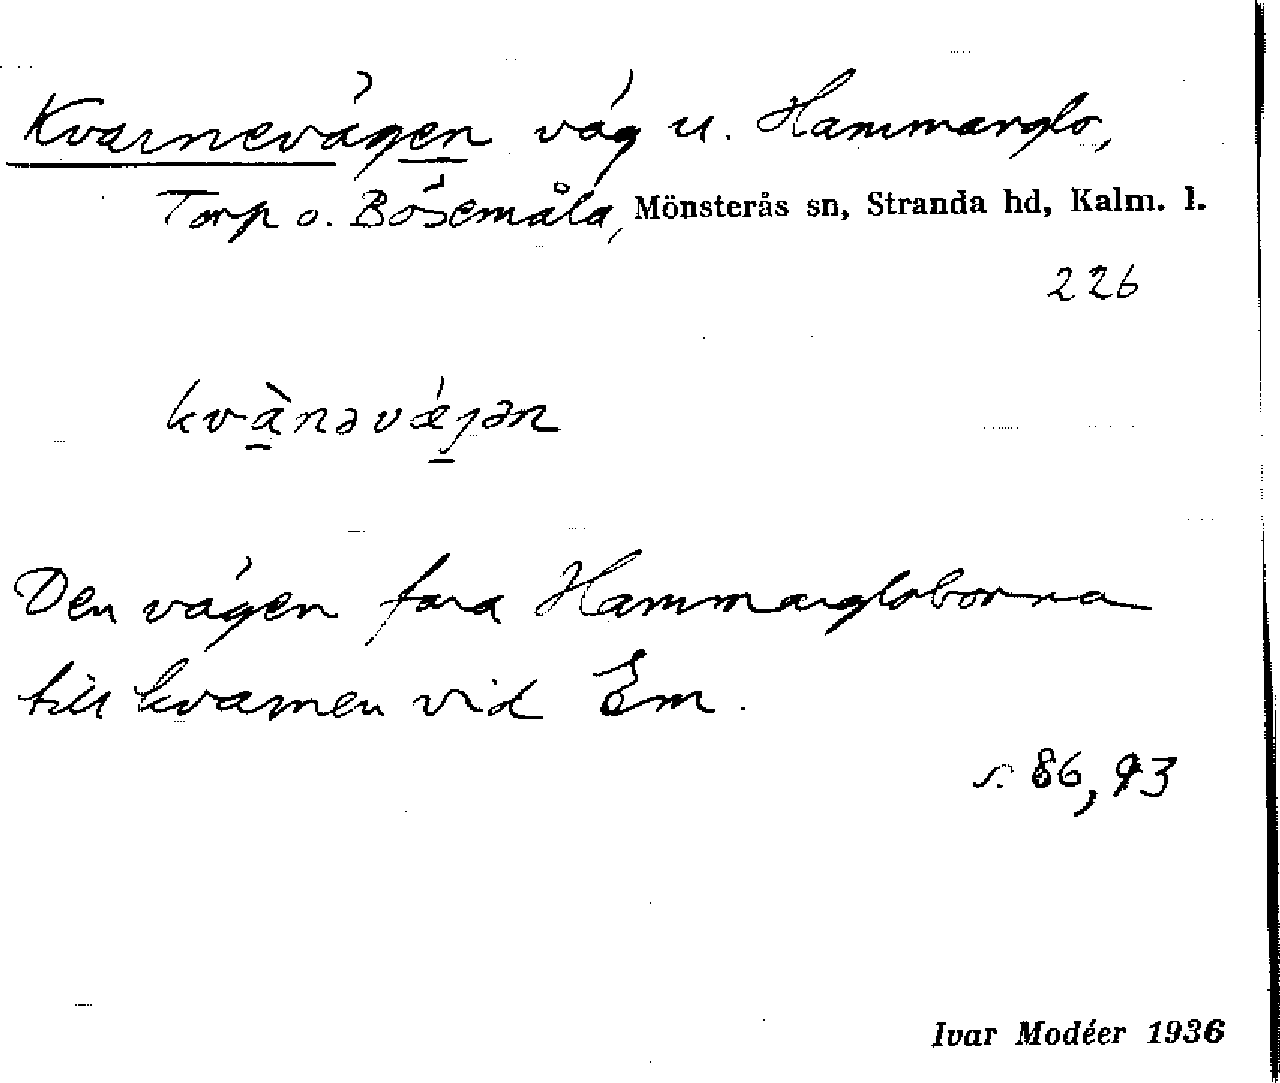 Kvarnevägen väg u. Hammarglo,
Torp o. Bösemåla, Mönsterås sn, Stranda hd, Kalm. l.
226
kvànəvǽjən
Den vägen fara Hammargloborna
till kvarnen vid Em.
s. 86, 93
Ivar Modéer 1936